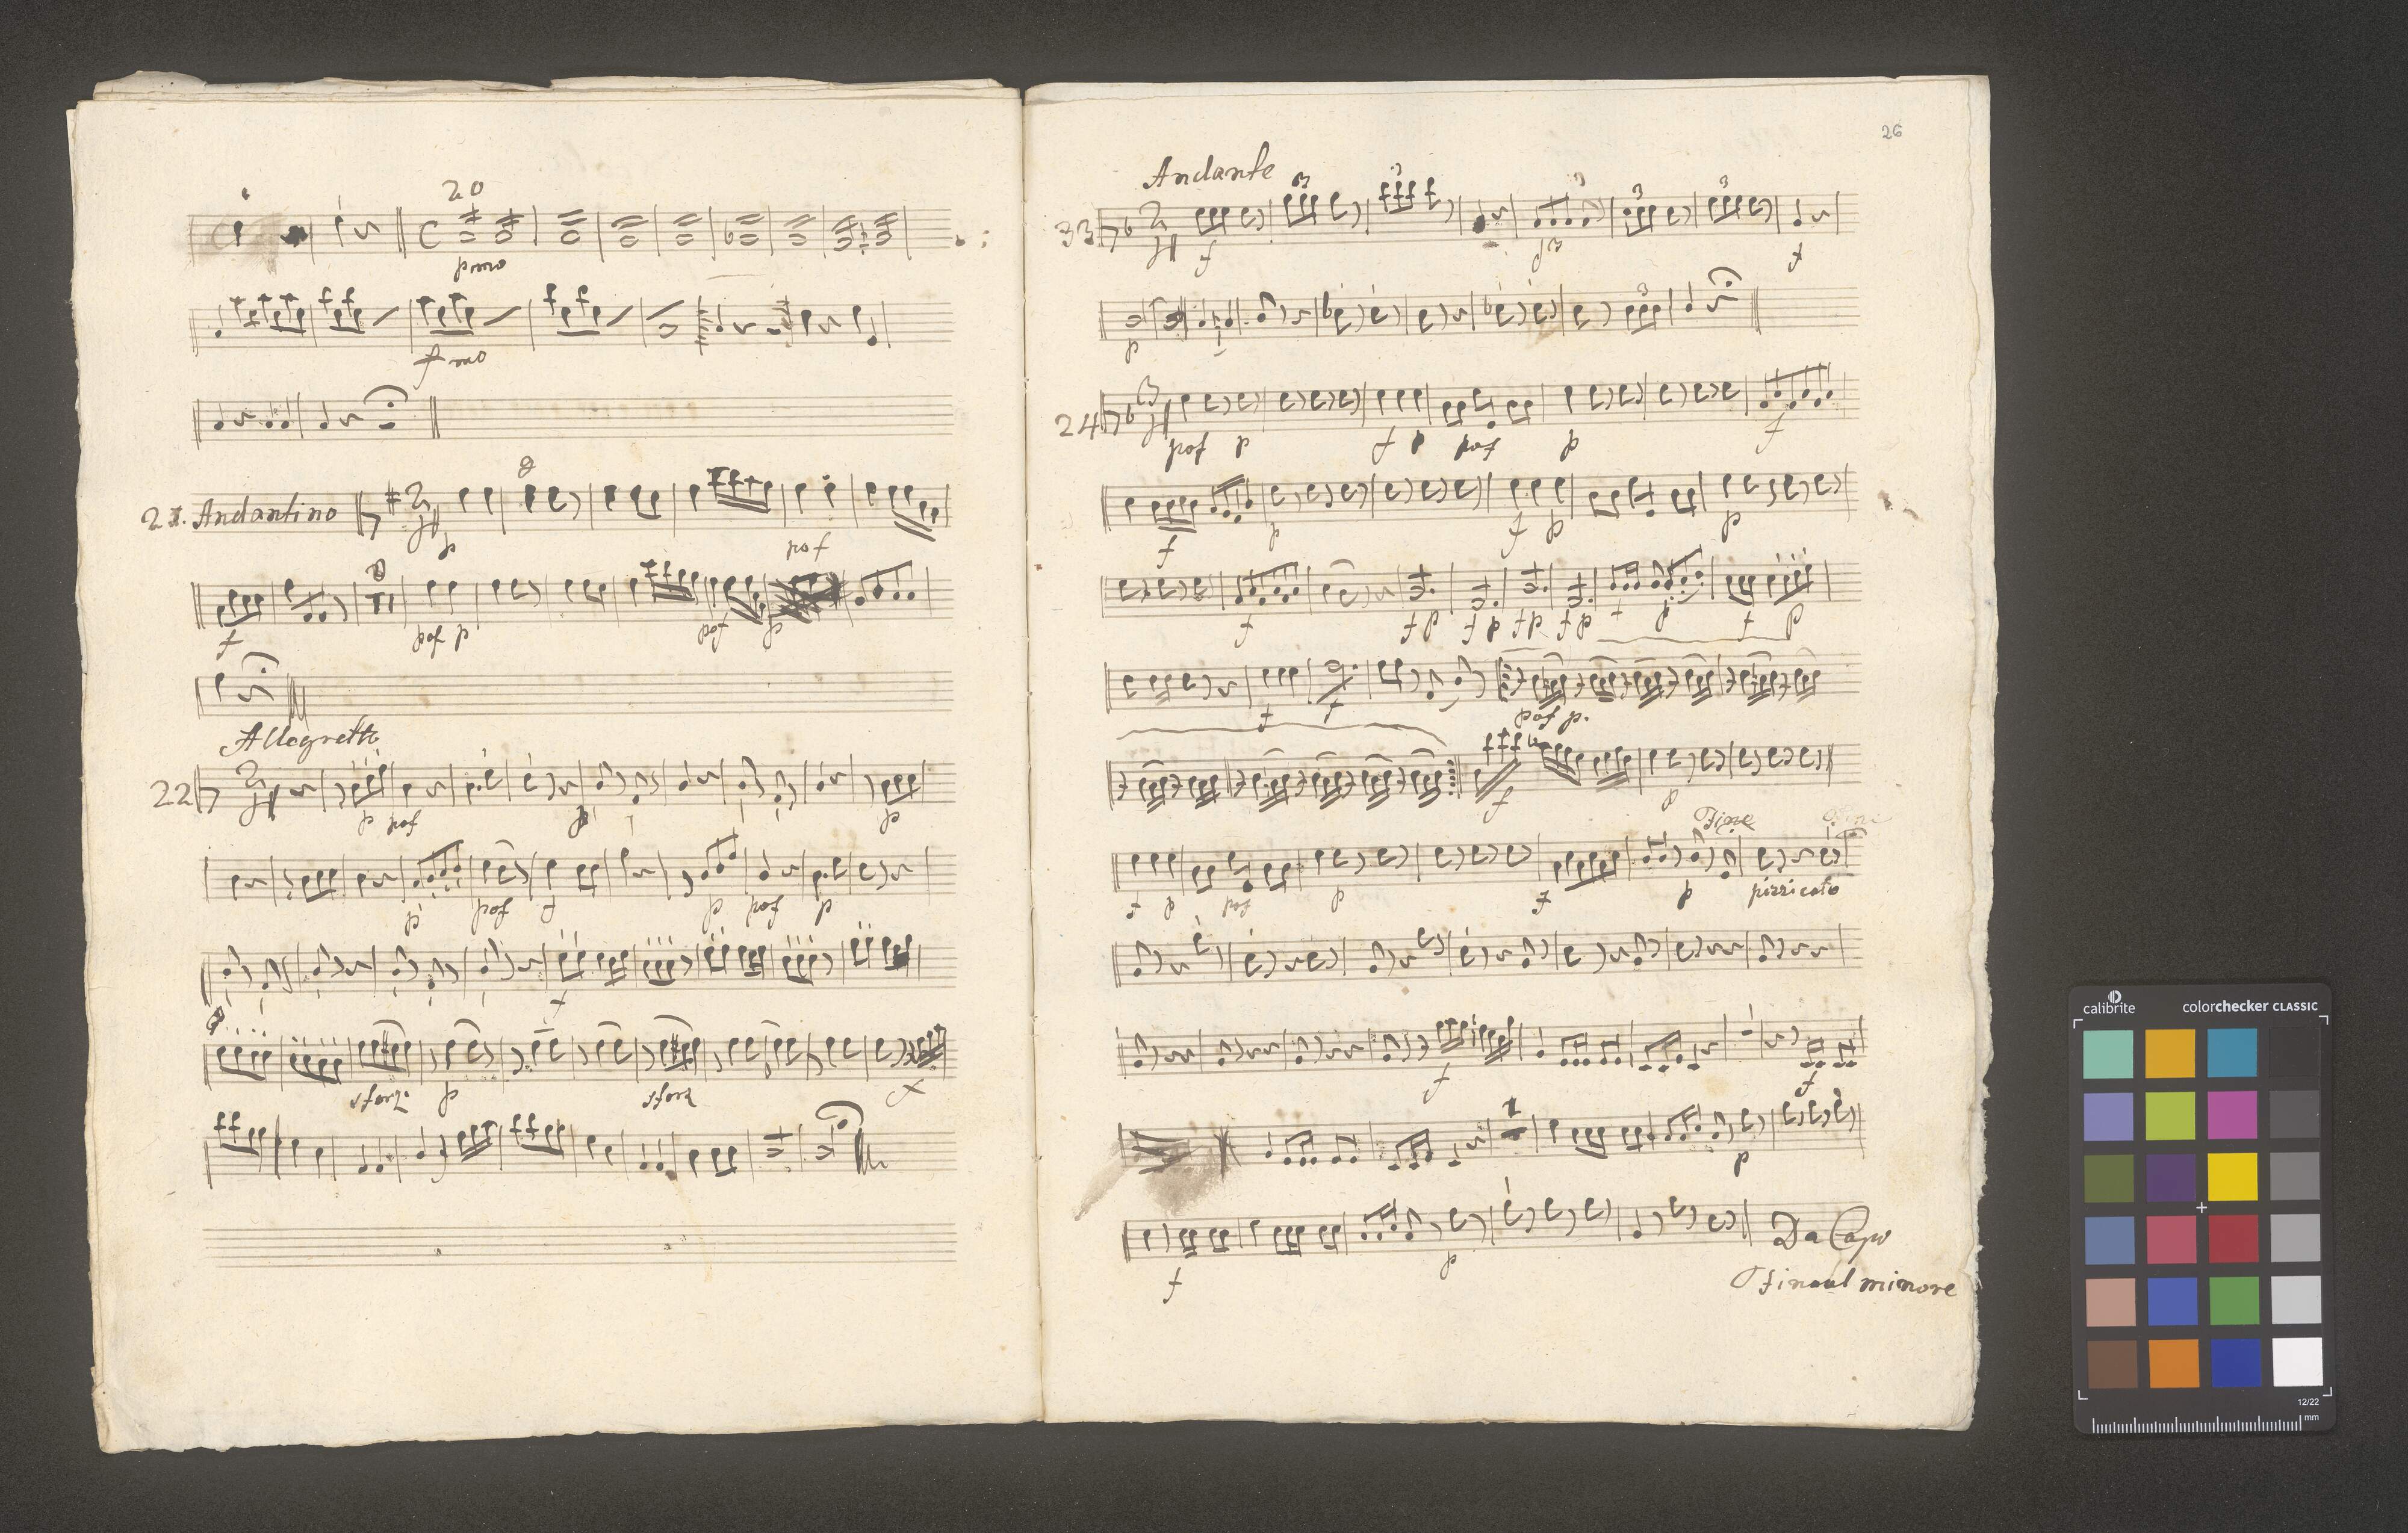 20
pmo
fmo
21. Andantino
p
pof
f
pof p
pof p
Allegretto
22
p pof p p
p pof f p pof p
f
sforz. p sforz f
26
Andante
33
3 3 3 3 3
f f
p
3
24
pof p f p pof p f
f p f p p
f f p f p f p f p f p f p
f f pof p.
f p
Fine
f p pof p f p pizzicato
f f
1
p
f p
Da Capo
Fin al minore
calibrite colorchecker CLASSIC
12/22
mm